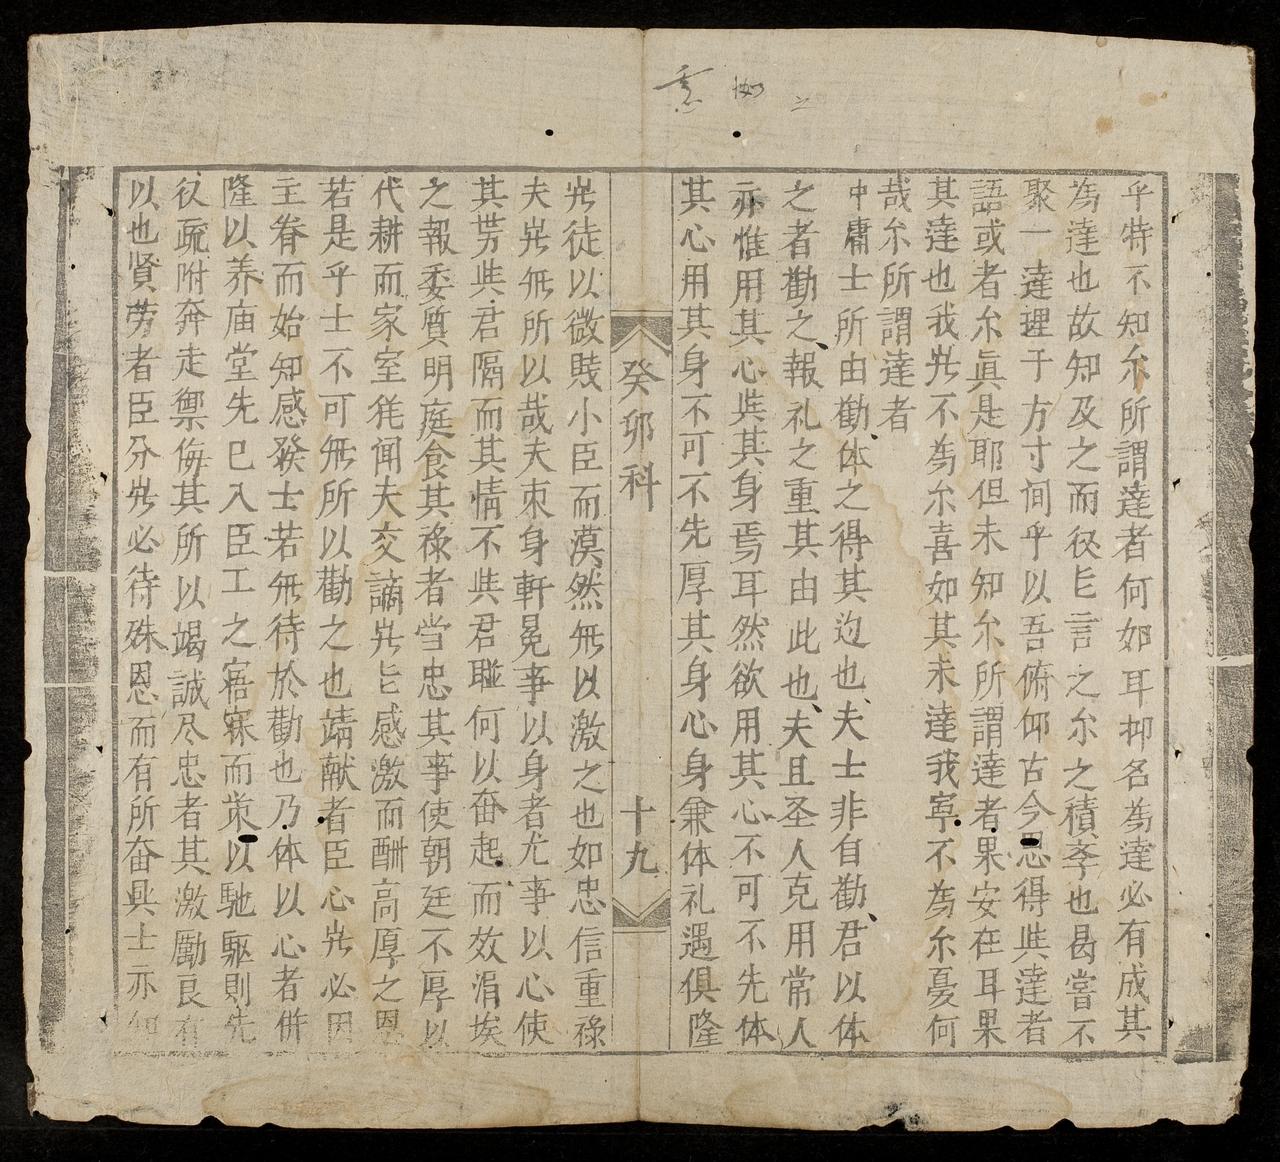 乎特不知尒所謂達者何如耳抑名為達必有成其
為達也故知及之而役㐌言之尒之積孝也曷嘗不
聚一達理于方寸间乎以吾俯仰古今思得𠀋達者
語或者尒真是耶但未知尒所謂達者果安在耳果
其達也我岂不為尒喜如其未達我寧不為尒憂何
哉尒所謂達者
中庸士所由勸、体之得其迩也、夫士非自勸、君以体
之者勸之、報礼之重其由此也、夫且圣人克用常人
亦惟用其心𠀋其身焉耳然欲用其心不可不先体
其心用其身不可不先厚其身心身兼体礼遇俱隆
癸卯科
十九
岂徒以微賤小臣而漠然無以激之也如忠信重祿
夫岂無所以哉夫束身軒冕事以身者尤事以心使
其势𠀋君隔而其情不𠀋君聨何以奋起而效涓埃
之報委質明庭食其祿者当忠其事使朝廷不厚以
代耕而家室徒闻夫交謫岂㐌感激而酬高厚之恩
若是乎士不可無所以勸之也靖献者臣心岂必因
主眷而始知感發士若無待於勸也乃体以心者併
隆以养庙堂先已入臣工之寤寐而策以馳驅則先
後疏附奔走禦侮其所以竭誠尽忠者其激勵良有
以也賢劳者臣分岂必待殊恩而有所奋興士亦知